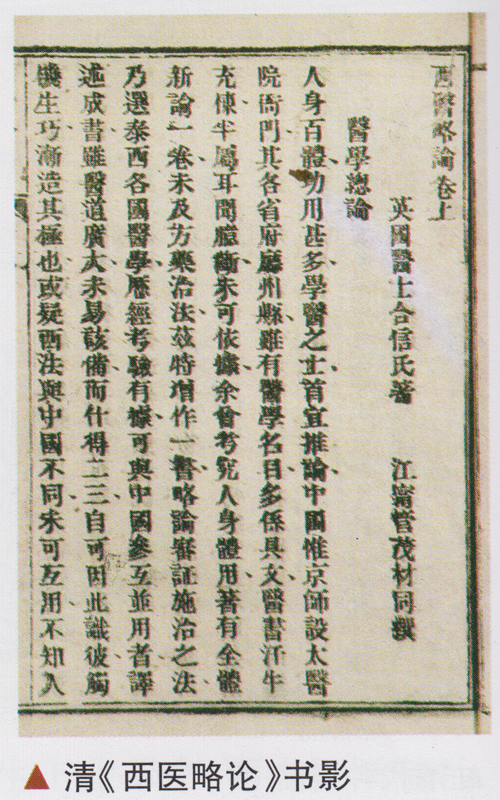 西醫略論卷上
英國醫士合信氏著 江寧管茂材同撰
醫學總論
人身百體功用甚多學醫之士首宜推論中國惟京師設太醫
院衙門其各省府廳州縣雖有醫學名目多係具文醫書汗牛
充棟半屬耳聞臆斷未可依據余曾考究人身體用著有全體
新論一卷未及方藥治法茲特增作一醫略論審証施治之法
乃選泰西各國醫學歷經考驗有據可與中國參互並用者譯
述成書雖醫道廣大未易該備而什得二三自可因此識彼觸
機生巧漸造其極也或疑西法與中國不同未可互用不知人
▲ 清《西医略论》书影